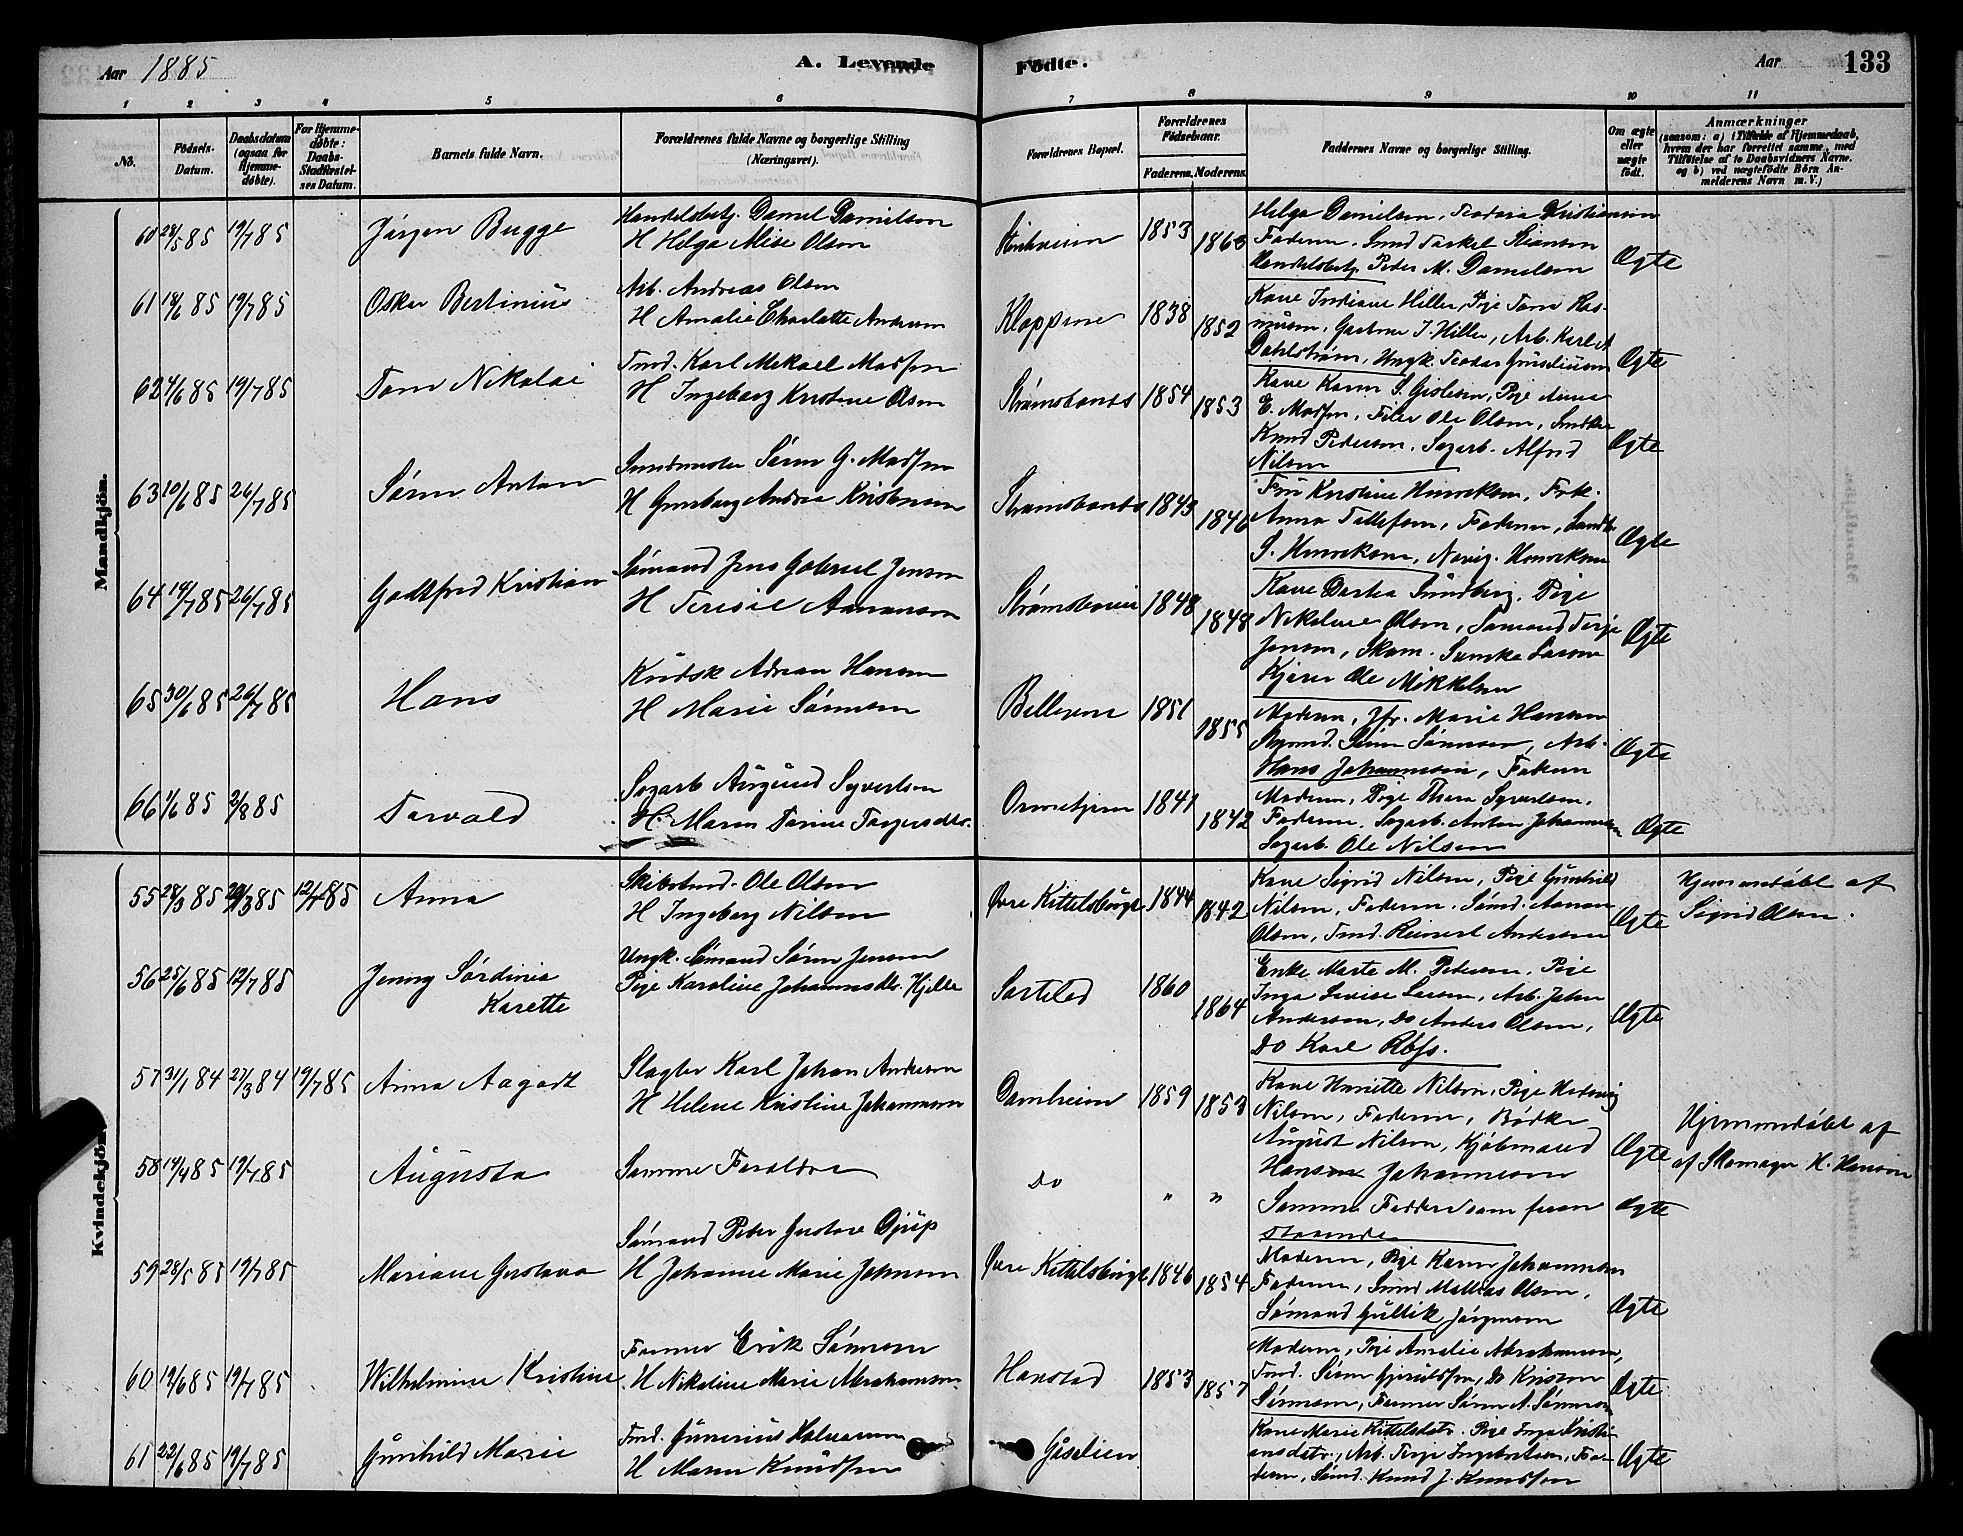 Aar 1885
A. Levende
Fødte.
Aar
133
1 2 3 4 5 6 7 8 9 10 11
No.
Fødsels-Datum.
Daabsdatum (ogsaa for Hjemme-døbte).
For Hjemme-døbte: Daabs-Stadfæstel-ses Datum.
Barnets fulde Navn.
Forældrenes fulde Navne og borgerlige Stilling (Næringsvei).
Forældrenes Bopæl.
Forældrenes Fødselsaar.
Faderens. Moderens.
Faddernes Navne og borgerlige Stilling.
Om ægte eller uægte født.
Anmærkninger
(saasom: a) i Tilfælde af Hjemmedaab, hvem der har forrettet samme, med Tilføielse af to Daabsvidners Navne, og b) ved uægtefødte Børn An-melderens Navn m. V.)
Mandkjön.
60 28/5 85 19/7 85 Jørgen Bugge
Handelsbetj. Daniel Danielsen
H Helga Alise Olsen
1853 1863
Helga Danielsen, Teodora Kristiansen
Faderen, Smd Torkel
Handelsbetj. Peder M. Danielsen
Ægte
61 18/6 85 19/7 85 Oskar Bertinius
Arb. Andreas Olsen
H Amalie Charlotte Andersen
Kloppene 1838 1852
Kone Indiane Hiller, Pige Tom Ras-
mussen, Gartner J. Hiller, Arb. Karl A
Dahlstrøm, Ungk. Teodor
Ægte
62 4/6 85 19/7 85 Tom Nikolai
Tmd. Karl Mekael Madsen
H Ingeborg Kristine Olsen
Strømsbonæs 1854 1853
Kone Karen S. Gislesen, Pige Anna
E. Madsen, Olsen,
Knud Pedersen, Sagarb. Alfred
Nilsen
Ægte
63 10/6 85 26/7 85 Søren Anton
Søren G. Madsen
H Gunborg Andrea Kristensen
1843 1846
Fru Kristine Henriksen, Frk.
Anna Tellefsen, Faderen,
S. Henriksen, Navig. Henriksen
Ægte
64 19/7 85 26/7 85 Godtfred Kristian
Sømand Jens Gabriel Jensen
H Teresie Aanensen
1848 1848
Kone Dortea Sundberg, Pige
Nikoline Olsen, Sømand Terje
Jensen, Skom.
Ole Mikkelsen
Ægte
65 30/6 85 26/7 85 Hans
Kudsk Adrian Hansen
H Marie Sørensen
Bellevue 1851 1855
Moderen, Jfr. Marie Hansen
Søren Sørensen, Arb.
Hans Johannesen, Faderen
Ægte
66 1/6 85 2/8 85 Torvald
Sagarb Syvertsen
H. Maren Torine
1841 1842
Moderen, Pige Thora Syvertsen,
Faderen, Sagarb. Anton Johannesen
Sagarb. Ole Nilsen
Ægte
Kvindekjön.
55 28/3 85 29/3 85 12/7 85 Anna
Skibstmd. Ole Olsen
H Ingeborg Nilsen
Øvre Kittelsbugt 1844 1842
Kone Sigrid Nilsen, Pige Gunhild
Nilsen, Faderen, Sømd. Aanon
Olsen, Tmd. Reinert Andersen
Ægte
Hjemmedøbt af
Sigrid Olsen.
56 25/6 85 12/7 85 Jenny Sørdinie
Karette
Ungk. Sømand Søren Jensen
Pige Karoline Johannesdtr. Hjelle
1860 1864
Enke Marte M. Pedersen, Pige
Inga Lovise Larsen, Arb. Johan
Andersen, Do Anders Olsen,
Do Karl
Ægte
57 31/1 84 27/3 84 19/7 85 Anna Aagodt
Slagter Karl Johan Andersen
H Helene Kristine Johannesen
Damheim 1859 1853
Kone Henriette Nilsen, Pige Hedevig
Nilsen, Faderen, Bødker
August Nilsen, Kjøbmand
Hansen Johannesen
Ægte
Hjemmedøbt af
af Skomager H. Hansen
58 14/4 85 19/7 85 Augusta
Samme Forældre
Do " "
Samme Faddere som foran
staaende
Ægte
59 28/5 85 19/7 85 Mariane Gustava
Sømand Peder Gustav Djup
H Johanne Marie Johnsen
Øvre Kittelsbugt 1846 1854
Moderen, Pige Karen Johannesen
Faderen, Smd Mathias Olsen,
Sømand Gullik Jørgensen
Ægte
60 12/6 85 19/7 85 Wilhelmine Kristine
Farmer Erik Sørensen
H Nikoline Marie Abrahamsen
Hanstad 1853 1857
Moderen, Pige Amalie Abrahamsen,
Tmd. Søren Gjerulfsen, Do Kristen
Sørensen, Farmer Søren A. Sørensen
Ægte
61 22/6 85 19/7 85 Gunhild Marie
Tmd. Gunerius Halvorsen
H Maren Knudsen
Gåselien
Kone Marie Kittelsdtr. Pige Inga Kristi-
ansdtr., Arb. Terje Ingebretsen, Fa-
deren, Sømd. Knud J. Knudsen
Ægte